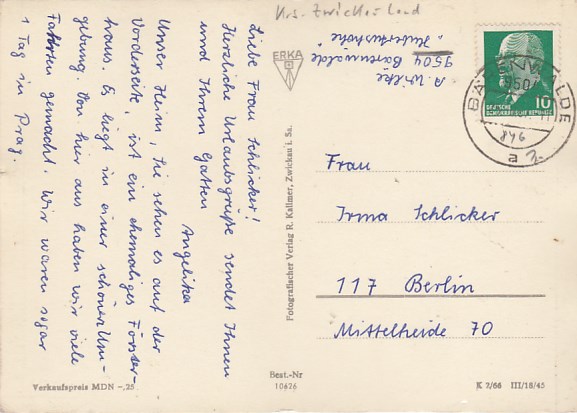 Liebe Frau Schlicker!
Herzliche Urlaubsgrüße sendet Ihnen
und Ihrem Gatten
Angelika
Unser Heim, Sie sehen es auf der
Vorderseite, ist ein ehemaliges Förster-
haus. Es liegt in einer schönen Um-
gebung. Von hier aus haben wir viele
Fahrten gemacht. Wir waren sogar
1 Tag in Prag.
Verkaufspreis MDN -,25
Krs. Zwickau Land
A. Wilke
9504 Bärenwalde
"Hubertushöhe"
ERKA
Fotografischer Verlag R. Kallmer, Zwickau i. Sa.
Best.-Nr
10626
10
DEUTSCHE
DEMOKRATISCHE REPUBLIK
BÄRENWALDE
9504
a
Frau
Irma Schlicker
117 Berlin
Mittelheide 70
K 7/66 III/18/45